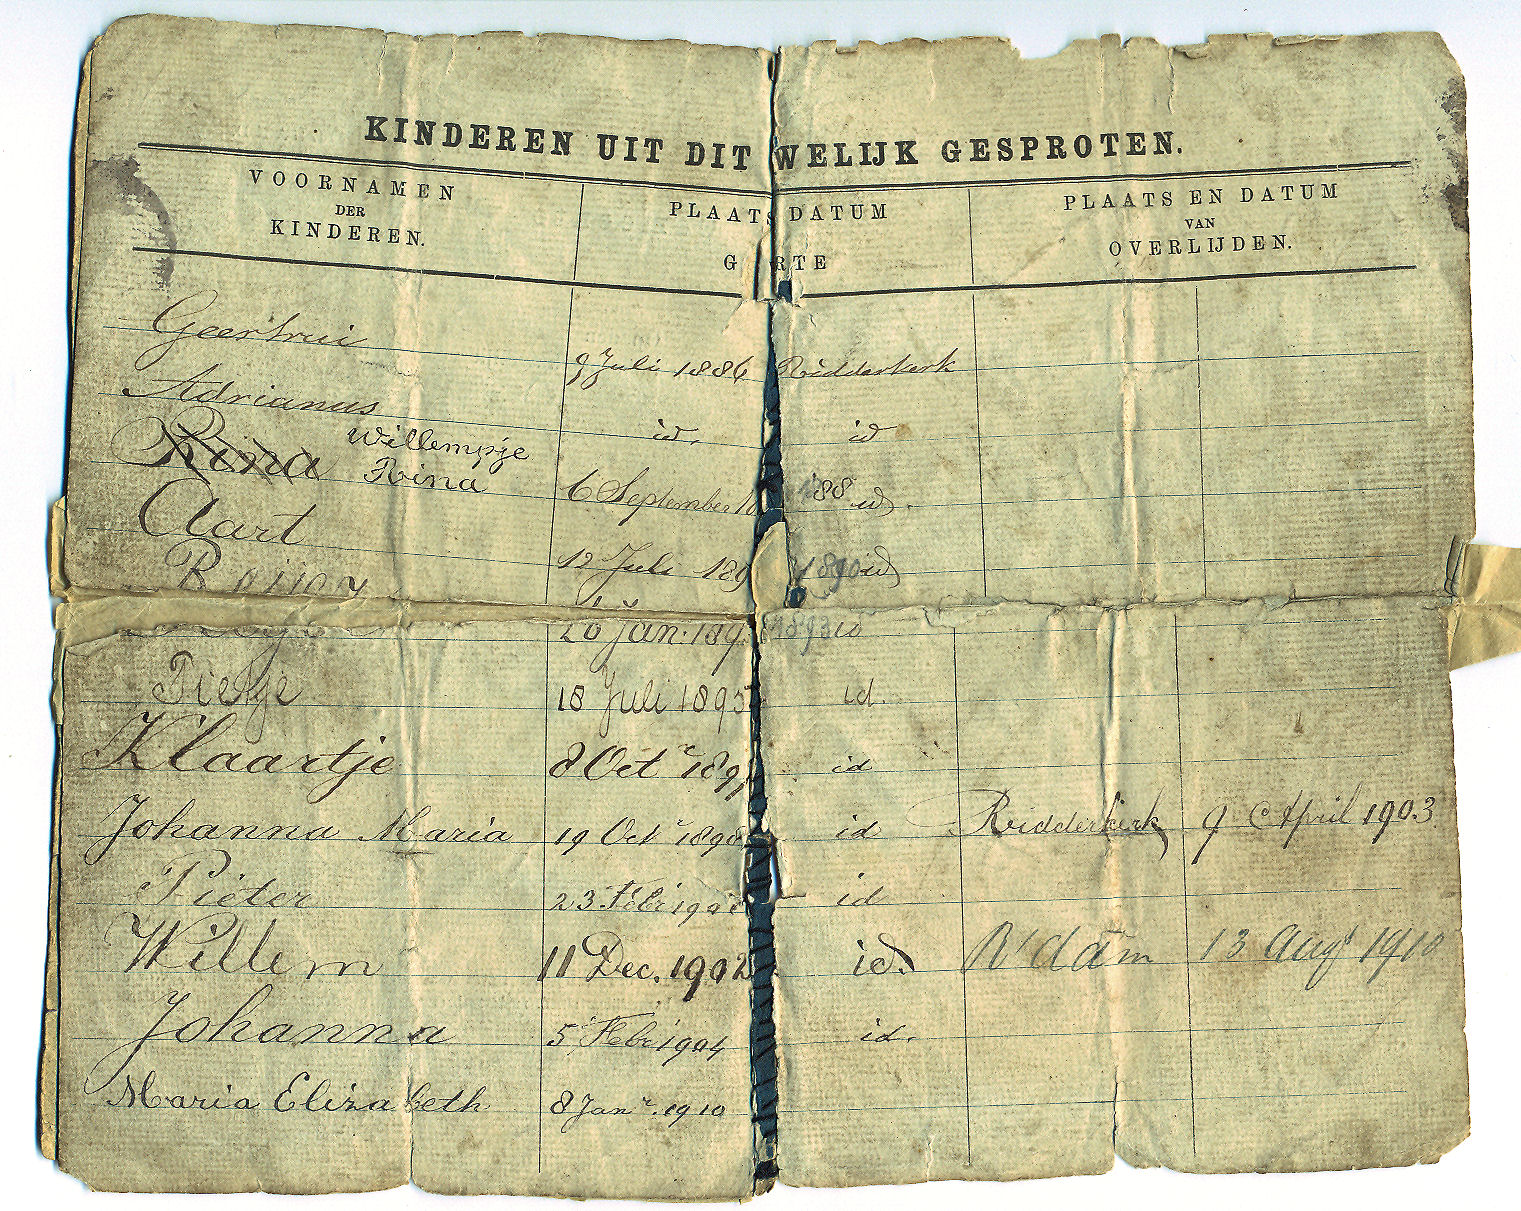 KINDEREN UIT DIT WELIJK GESPROTEN.
VOORNAMEN
DER
KINDEREN.
PLAATS DATUM
G RTE
PLAATS EN DATUM
VAN
OVERLIJDEN.
Geertrui 9 Juli 1886 Ridderkerk
Adrianus id. id
Willempje
Rina Rina 6 September 18 88 id.
Aart 12 Juli 189 1890 id
20 Jan. 189 1893 id
Pietje 18 Juli 1895 id.
Klaartje 8 Oct r 1897 id
Johanna Maria 19 Oct r 1898 id Ridderkerk 9 April 1903
Pieter 23 Febr 190 id
Willem 11 Dec. 1902 id. R'dam 13 Augt 1910
Johanna 5 Febr 1904 id.
Maria Elizabeth 8 Jan r. 1910